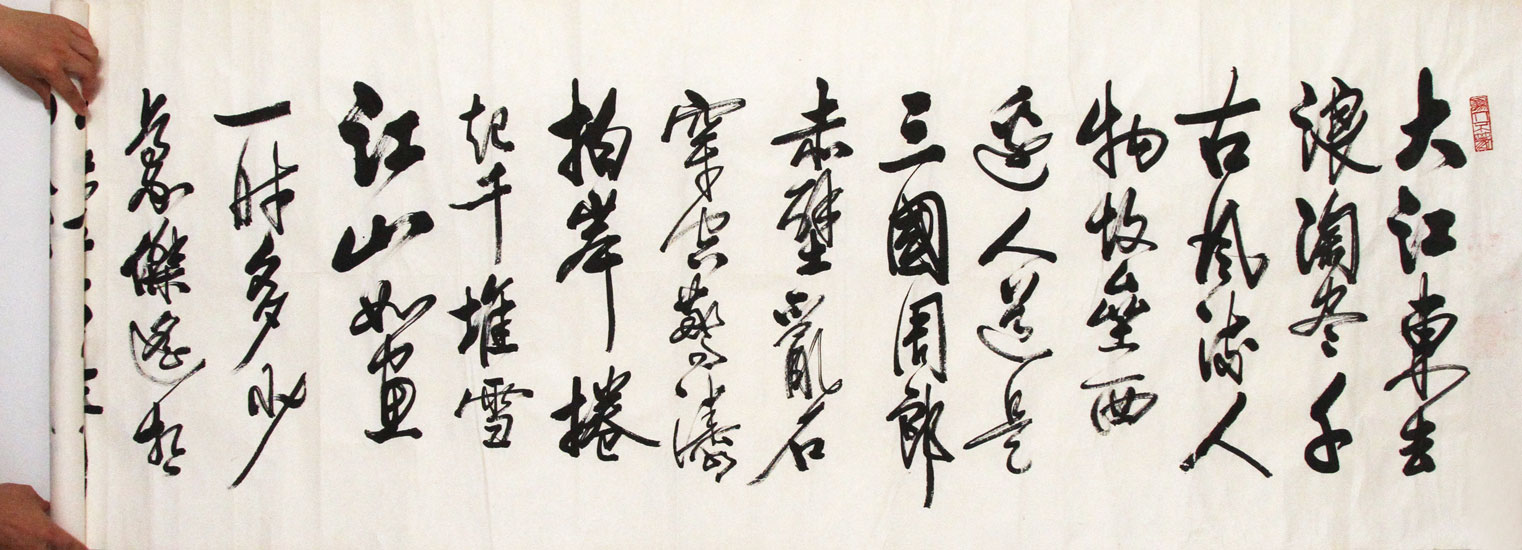 大江東去
浪淘尽千
古風流人
物故壘西
邊人道是
三國周郎
赤壁亂石
穿空驚濤
拍岸捲
起千堆雪
江山如畫
一時多少
豪傑遙想